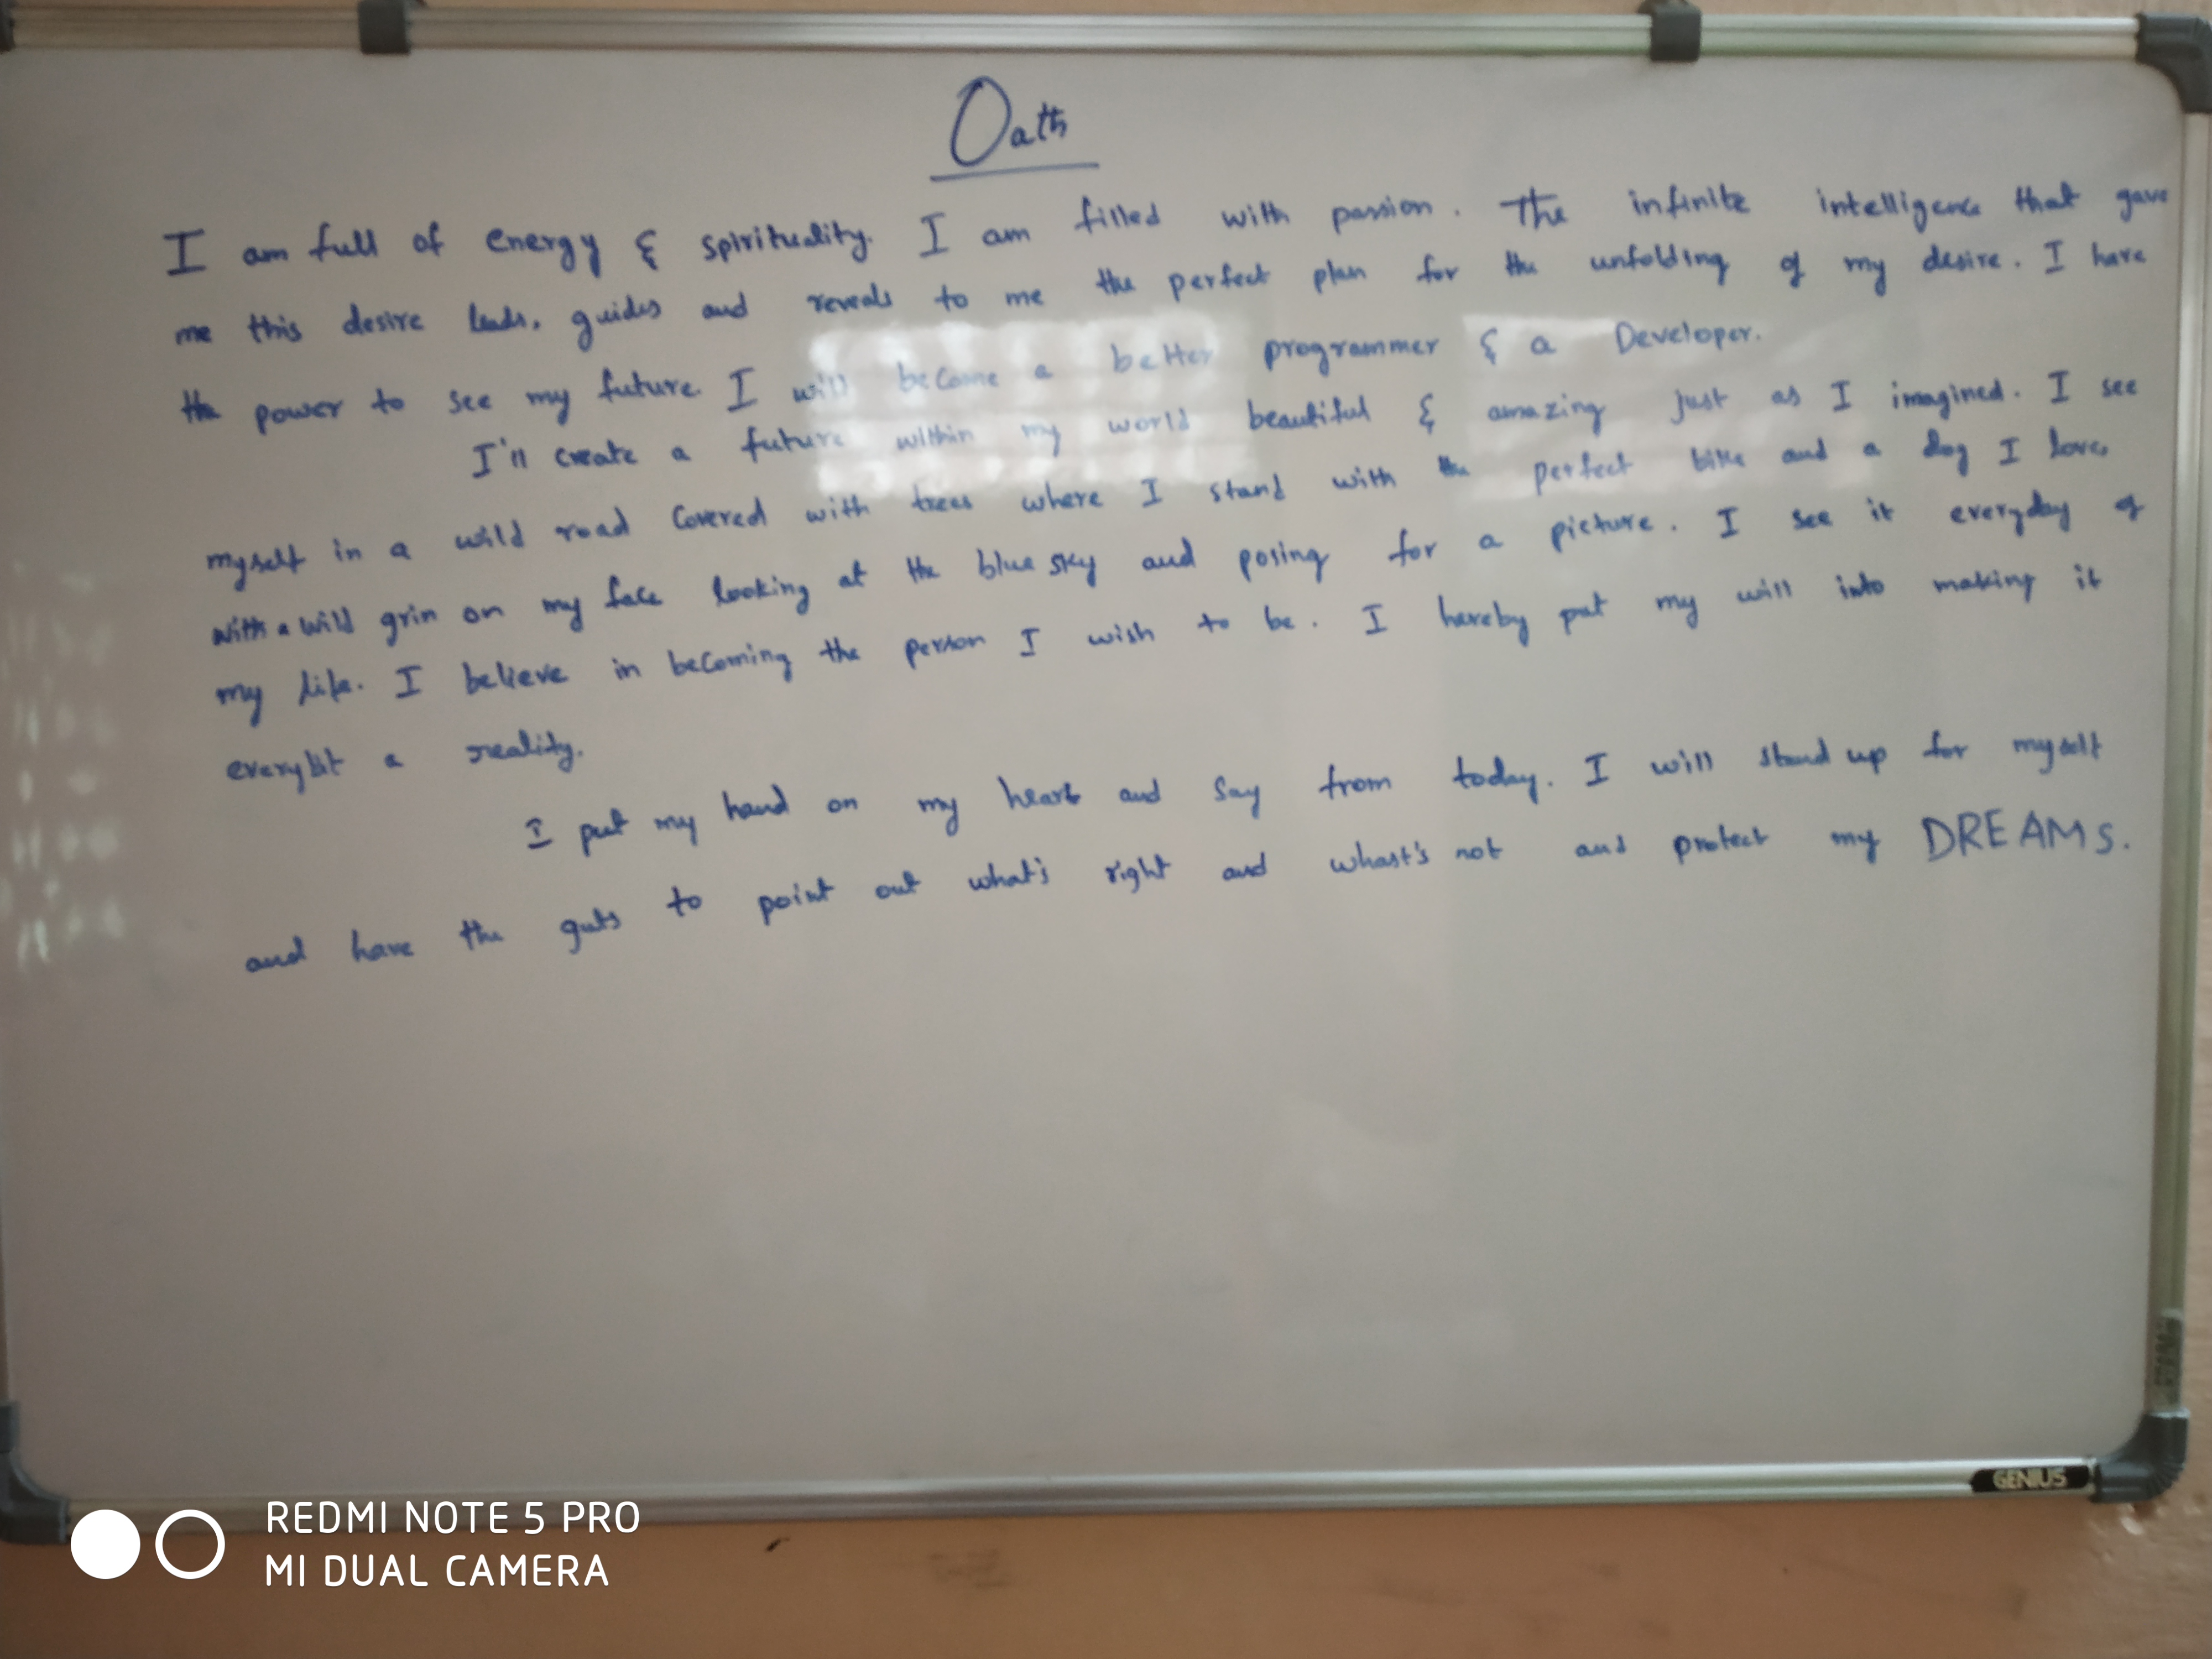 Oath
I am full of energy & spirituality. I am filled with passion. The infinite intelligence that gave
me this desire leads, guides and reveals to me the perfect plan for the unfolding of my desire. I have
the power to see my future. I will become a better programmer & a Developer.
I'll create a future within my world beautiful & amazing just as I imagined. I see
myself in a wild road covered with trees where I stand with the perfect bike and a dog I love
with a wild grin on my face looking at the blue sky and posing for a picture. I see it everyday of
my life. I believe in becoming the person I wish to be. I hereby put my will into making it
everybit a reality.
I put my hand on my heart and say from today. I will stand up for myself
and have the guts to point out what's right and whast's not and protect my DREAMS.
GENIUS
REDMI NOTE 5 PRO
MI DUAL CAMERA